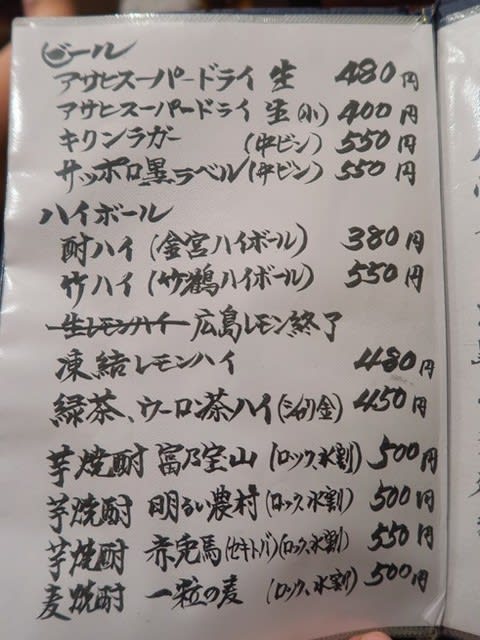 ビール
アサヒスーパードライ 生 480円
アサヒスーパードライ 生(小) 400円
キリンラガー (中ビン) 550円
サッポロ黒ラベル(中ビン) 550円
ハイボール
酎ハイ (金宮ハイボール) 380円
竹ハイ (竹鶴ハイボール) 550円
生レモンハイ 広島レモン終了
凍結レモンハイ 480円
緑茶、ウーロン茶ハイ(シャリ金) 450円
芋焼酎 富乃宝山 (ロック、水割) 500円
芋焼酎 明るい農村(ロック、水割) 500円
芋焼酎 赤兎馬(セキトバ)(ロック、水割) 550円
麦焼酎 一粒の麦 (ロック、水割) 500円